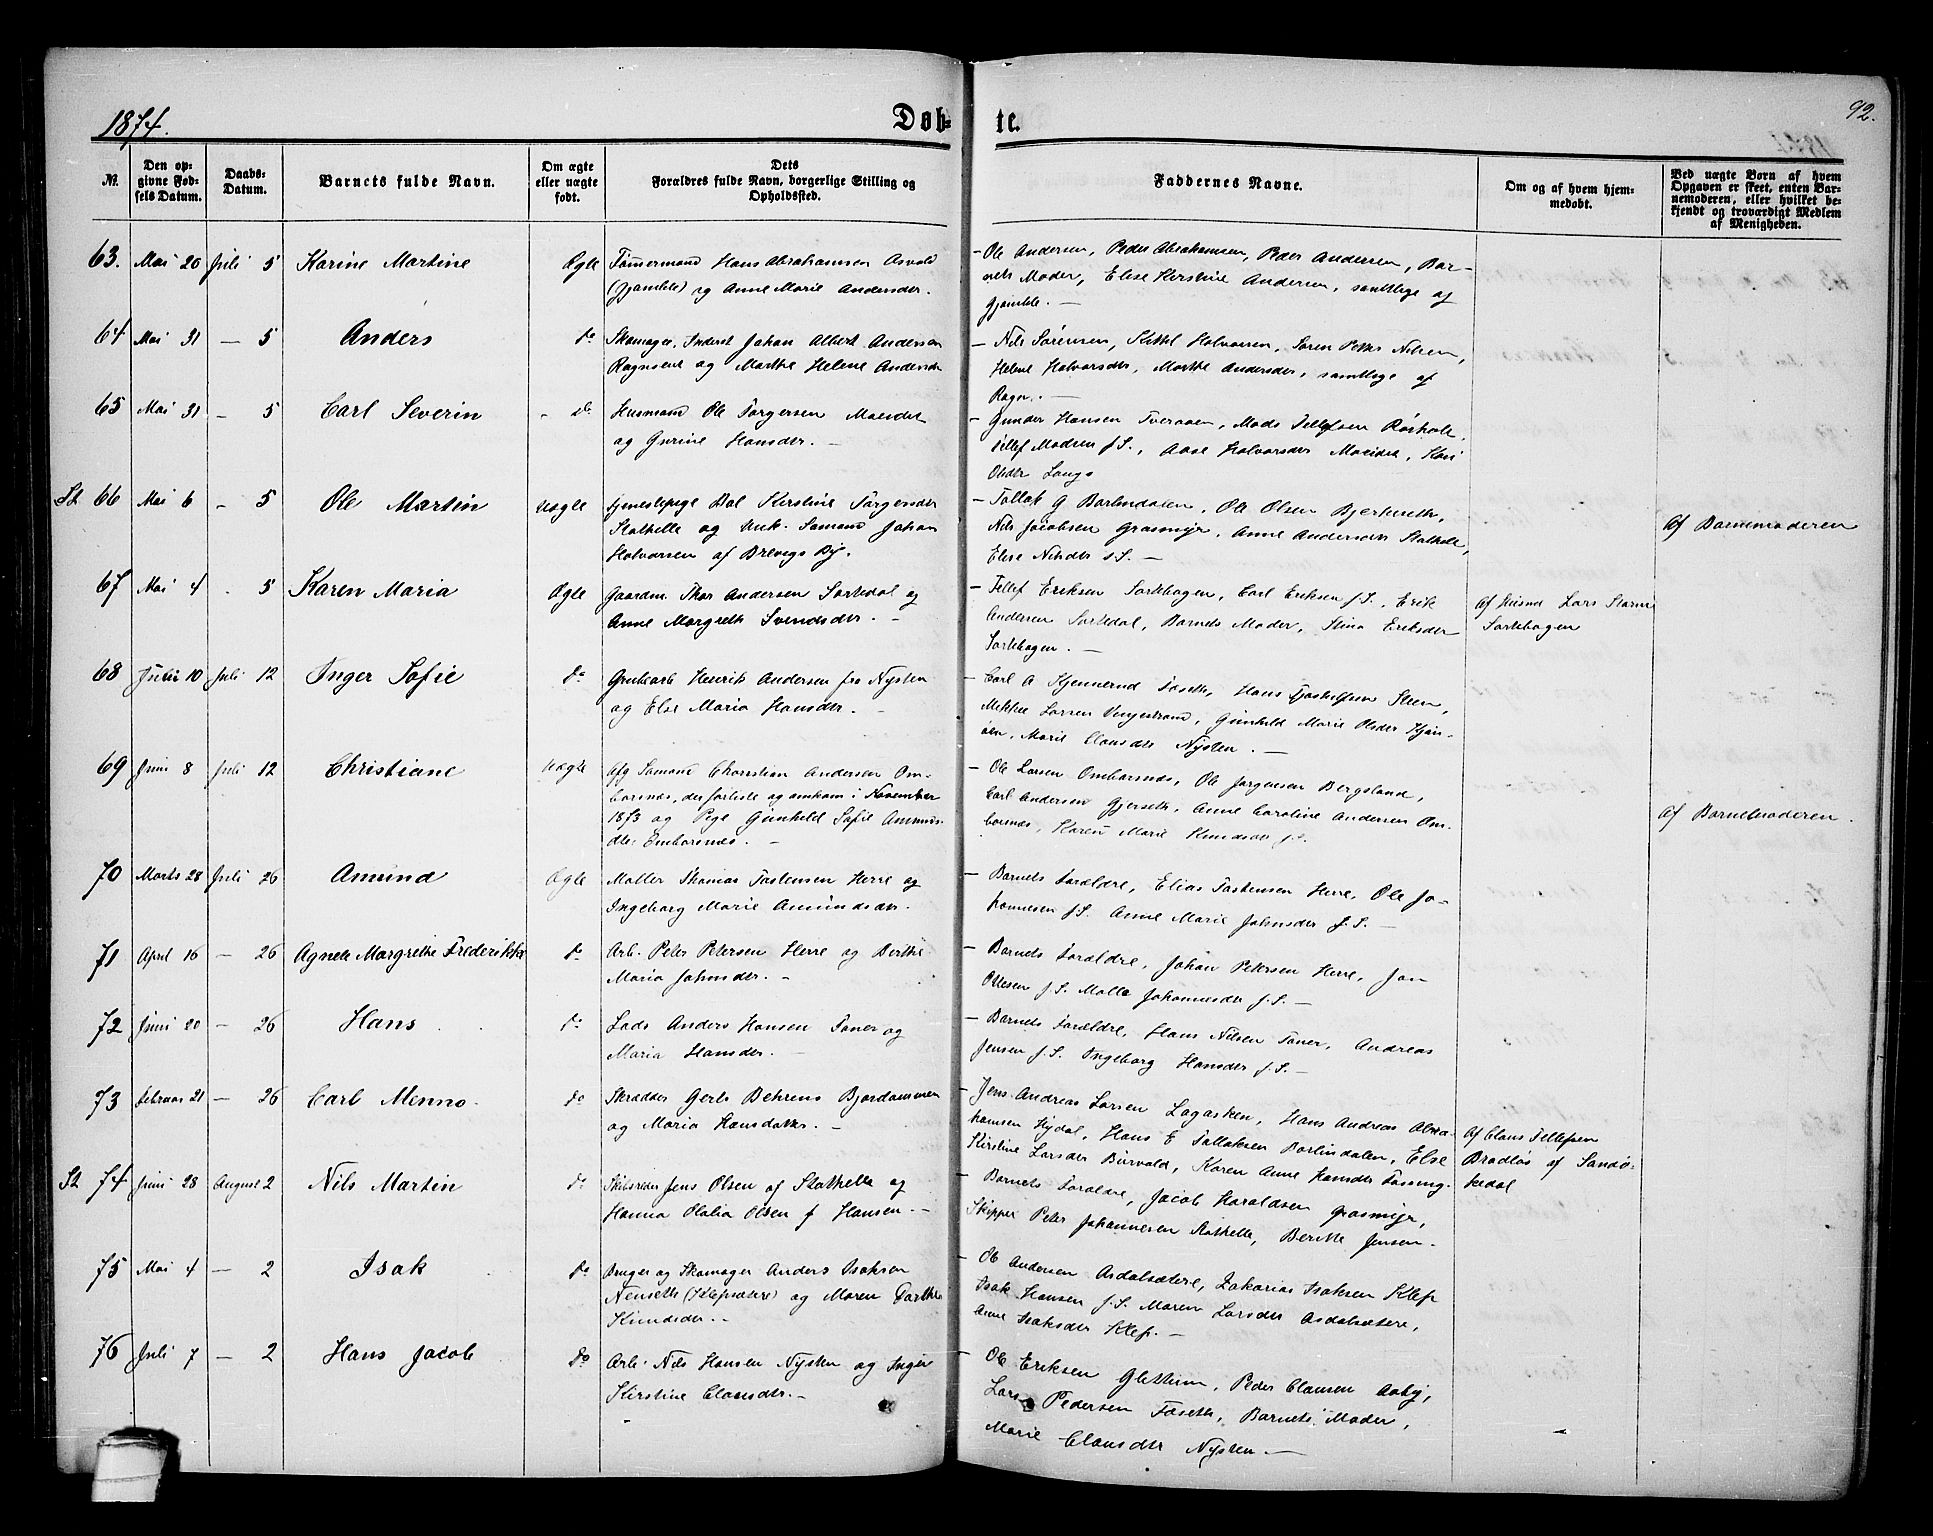 1874.
Døb-
te.
92.
No.
Den op-
givne Fød-
sels Datum.
Daabs-
Datum.
Barnets fulde Navn.
Om ægte
eller uægte
født.
Dets
Forældres fulde Navn, borgerlige Stilling og
Opholdssted.
Faddernes Navne.
Om og af hvem hjem-
medøbt.
Ved uægte Børn af hvem
Opgaven er skeet, enten Bar-
nemoderen, eller hvilket be-
kjendt og troværdigt Medlem
af Menigheden.
63. Mai 20 Juli 5 Karine Martine Ægte
Tømmermand Hans Abrahamsen Asvold
(Gjamble) og Anne Marie Andersdr.
- Ole Andersen, Peder Abrahamsen, Peder Andersen, Bar-
nets Moder, Elise Kirstine Andersen, samtlige af
Gjamble. -
64 Mai 31 - 5 Anders do
Skomager, Inderst Johan Albert Andersen
Rognsene og Marthe Helene Andersdr
- Nils Sørensen, Kittil Halvorsen, Søren Petter Nilsen,
Helene Halvorsdr, Marthe Andersdr, samtlige af
Rogn. -
65 Mai 31 - 5 Carl Severin - do
Husmand Ole Torgersen Moeidet
og Gurine Hansdr. -
- Gunder Hansen Tveraaen, Mads Tellefsen Rørholt,
Tellef Madsen f. S., Aase Halvorsdr Moeidet, Kari
Olsdr Langø
St 66 Mai 6 - 5 Ole Martin uægte
Tjenestepige Bol Kirstine Torgersdr
Stathelle og Unk. Sømand Johan
Halvorsen af Brevigs By.
- Tollak G Bartindalen, Ole Olsen Bjerketeth,
Nils Jacobsen Grasmyr, Anne Andersdr Stathelle,
Elise Nilsdr s S. -
Af Barnemoderen
67 Mai 4 . 5 Karen Maria Ægte
Gaardm. Thor Andersen Sortedal og
Anne Margrethe Svendsdr. -
- Tellef Eriksen Sortebogen, Carl Eriksen f. S., Erik
Andersen Sortedal, Barnets Moder, Stina Eriksdr
Sortebogen. -
Af Husmd Lars Larsen
Sortebogen
68 Juni 10 Juli 12 Inger Sofie do
Grubearb Henrik Andersen fra Nysten
og Else Maria Hansdr. -
- Carl A Kjennerud Foseth, Hans Tjostolfsen Steen,
Mekkel Larsen Vinjestrand, Gunhild Marie Olsdr Kjøn-
øen, Marie Clausdr Nysten. -
69 Juni 8 Juli 12 Christiane Uægte
Afg Sømand Chorrstian Andersen Om-
borsnæs, der forliste og omkom i November
1873 og Pige Gunhild Sofie Ammus
dtr Omborsnæs. -
- Ole Larsen Omborsnæs, Ole Jørgensen Bergsland,
Carl Andersen Gjerseth, Anne Caroline Andersen Om-
borsnæs, Karen Marie Knudsdr f. S.
Af Barnemoderen.
70 Marts 28 Juli 26 Amund Ægte
Møller Thomas Torstensen Herre og
Ingeborg Marie Amundsdr.
- Barnets Forældre, Elias Torstensen Herre, Ole Jo-
hannesen f. S. Anne Marie Johnsdr f. S. -
71 April 16 - 26 Agnete Margrethe Frederikke do
Arb. Peter Petersen Herre og Berthe
Maria Johnsdr. -
- Barnets Forældre, Johan Petersen Herre, Jon
Ottesen f. S. Malla Johannesdr f. S. -
72 Juni 20 - 26 Hans do
Lods Anders Hansen Toner og
Maria Hansdr. -
- Barnets Forældre, Hans Nilsen Toner, Andreas
Jensen f. S. Ingeborg Hansdr f. S. -
73 Februar 21 - 26 Carl Menno do
Skrædder Gerts Behrens Bjordammen
og Maria Hansdatter. -
- Jens Andreas Larsen Lagasken, Hans Andreas Abra-
hamsen Hydal, Hans E Tollaksen Bartindalen, Else
Kirstine Larsdr Burvald, Karen Anne Hansdr Fossing.
Af Claus Tellefsen
Bradløs af Sandø-
kedal
St 74 Juni 28 August 2 Nils Martin do
Skibsreder Jens Olsen af Stathelle og
Hanna Olalia Olsen f Hansen. -
- Barnets Forældre, Jacob Haraldsen Grasmyr,
Skipper Peter Johannesen Stathelle, Berthe Jensen.
75 Mai 4 - 2 Isak do
Bruger og Skomager Anders Isaksen
Nenseth (Klepsætere) og Maren Dorthe
Knudsdr. -
- Ole Andersen Asdalsætere, Zakarias Isaksen Klep
Isak Hansen f. S. Maren Larsdr Asdalsætere,
Anne Isaksdr Klep. -
76 Juli 7 - 2 Hans Jacob do
Arb. Nils Hansen Nysten og Inger
Kirstine Clausdr. -
- Ole Eriksen Glettum, Peder Clausen Aaby,
Lars Pedersen Foseth, Barnets Moder,
Marie Clausdr Nysten. -